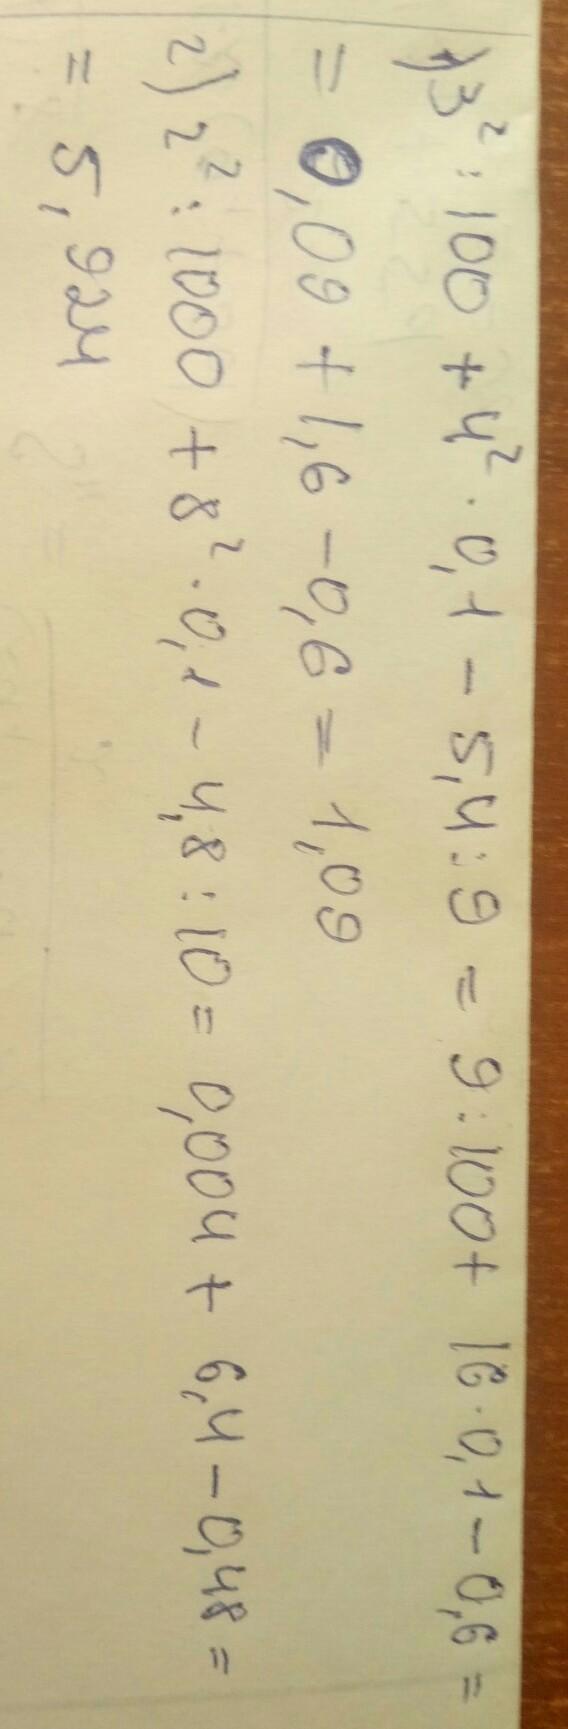 1) 3² : 100 + 4² · 0,1 - 5,4 : 9 = 9 : 100 + 16 · 0,1 - 0,6 =
= 0,09 + 1,6 - 0,6 = 1,09
2) 2² : 1000 + 8² · 0,1 - 4,8 : 10 = 0,004 + 6,4 - 0,48 =
= 5,924